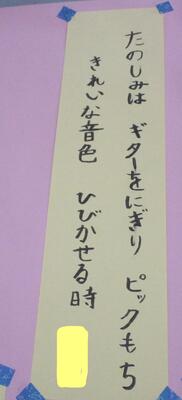 たのしみは ギターをにぎり ピックもち
きれいな音色 ひびかせる時